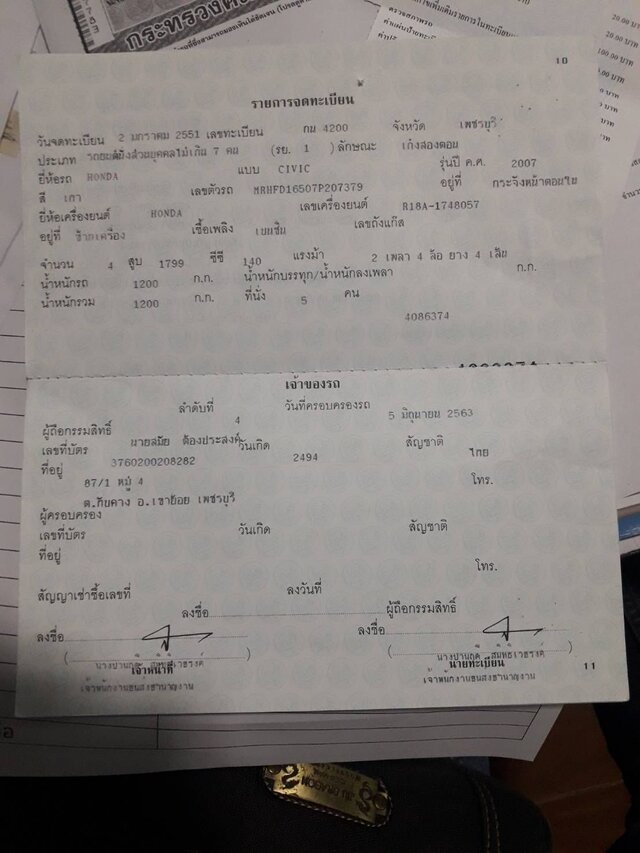 กระทรวงค
ตรวจสภาพรถ
20.00 บาท
20.00 บาท
100.00 บาท
.00 บาท
บาท
บาท
10
รายการจดทะเบียน
วันจดทะเบียน 2 มกราคม 2551 เลขทะเบียน กน 4200 จังหวัด เพชรบุรี
ประเภท รถยนต์นั่งส่วนบุคคลไม่เกิน 7 คน (รย. 1 ) ลักษณะ เก๋งสองตอน
ยี่ห้อรถ HONDA แบบ CIVIC รุ่นปี ค.ศ. 2007
สี เทา เลขตัวรถ MRHFD16507P207379 อยู่ที่ กระจังหน้าตอนใน
ยี่ห้อเครื่องยนต์ HONDA เลขเครื่องยนต์ R18A-1748057
อยู่ที่ ซ้ายเครื่อง เชื้อเพลิง เบนซิน เลขถังแก๊ส
จำนวน 4 สูบ 1799 ซีซี 140 แรงม้า 2 เพลา 4 ล้อ ยาง 4 เส้น
น้ำหนักรถ 1200 ก.ก. น้ำหนักบรรทุก/น้ำหนักลงเพลา ก.ก.
น้ำหนักรวม 1200 ก.ก. ที่นั่ง 5 คน
4086374
เจ้าของรถ
ลำดับที่ 4 วันที่ครอบครองรถ 5 มิถุนายน 2563
ผู้ถือกรรมสิทธิ์ นายสมัย ต้องประสงค์
เลขที่บัตร 3760200208282 วันเกิด 2494 สัญชาติ ไทย
ที่อยู่ 87/1 หมู่ 4 โทร.
ต.ทับคาง อ.เขาย้อย เพชรบุรี
ผู้ครอบครอง
เลขที่บัตร วันเกิด สัญชาติ
ที่อยู่
โทร.
สัญญาเช่าซื้อเลขที่ ลงวันที่
ลงชื่อ ผู้ถือกรรมสิทธิ์
ลงชื่อ ลงชื่อ
เจ้าหน้าที่ นายทะเบียน
เจ้าพนักงานขนส่งชำนาญงาน เจ้าพนักงานขนส่งชำนาญงาน
11
JIU DRAGON